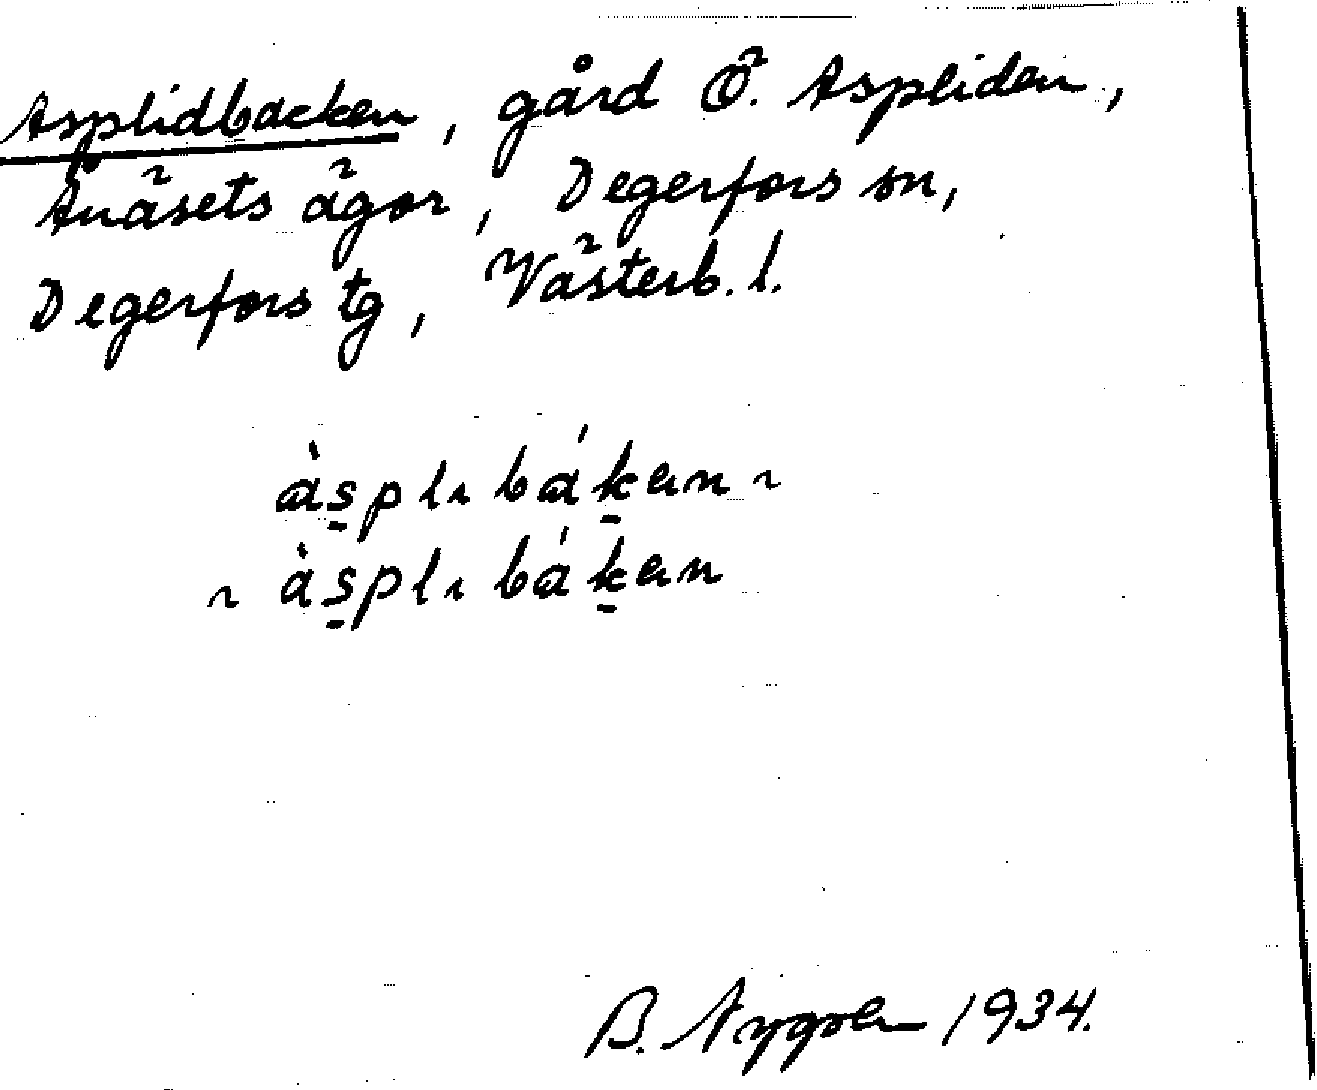 Asplidbacken, gård Ö. Aspliden,
Ånäsets ägor, Degerfors sn,
Degerfors tg, Västerb. l.
às̱plı báḵen ~
~ às̱plı báḵen
B. Nygren 1934.